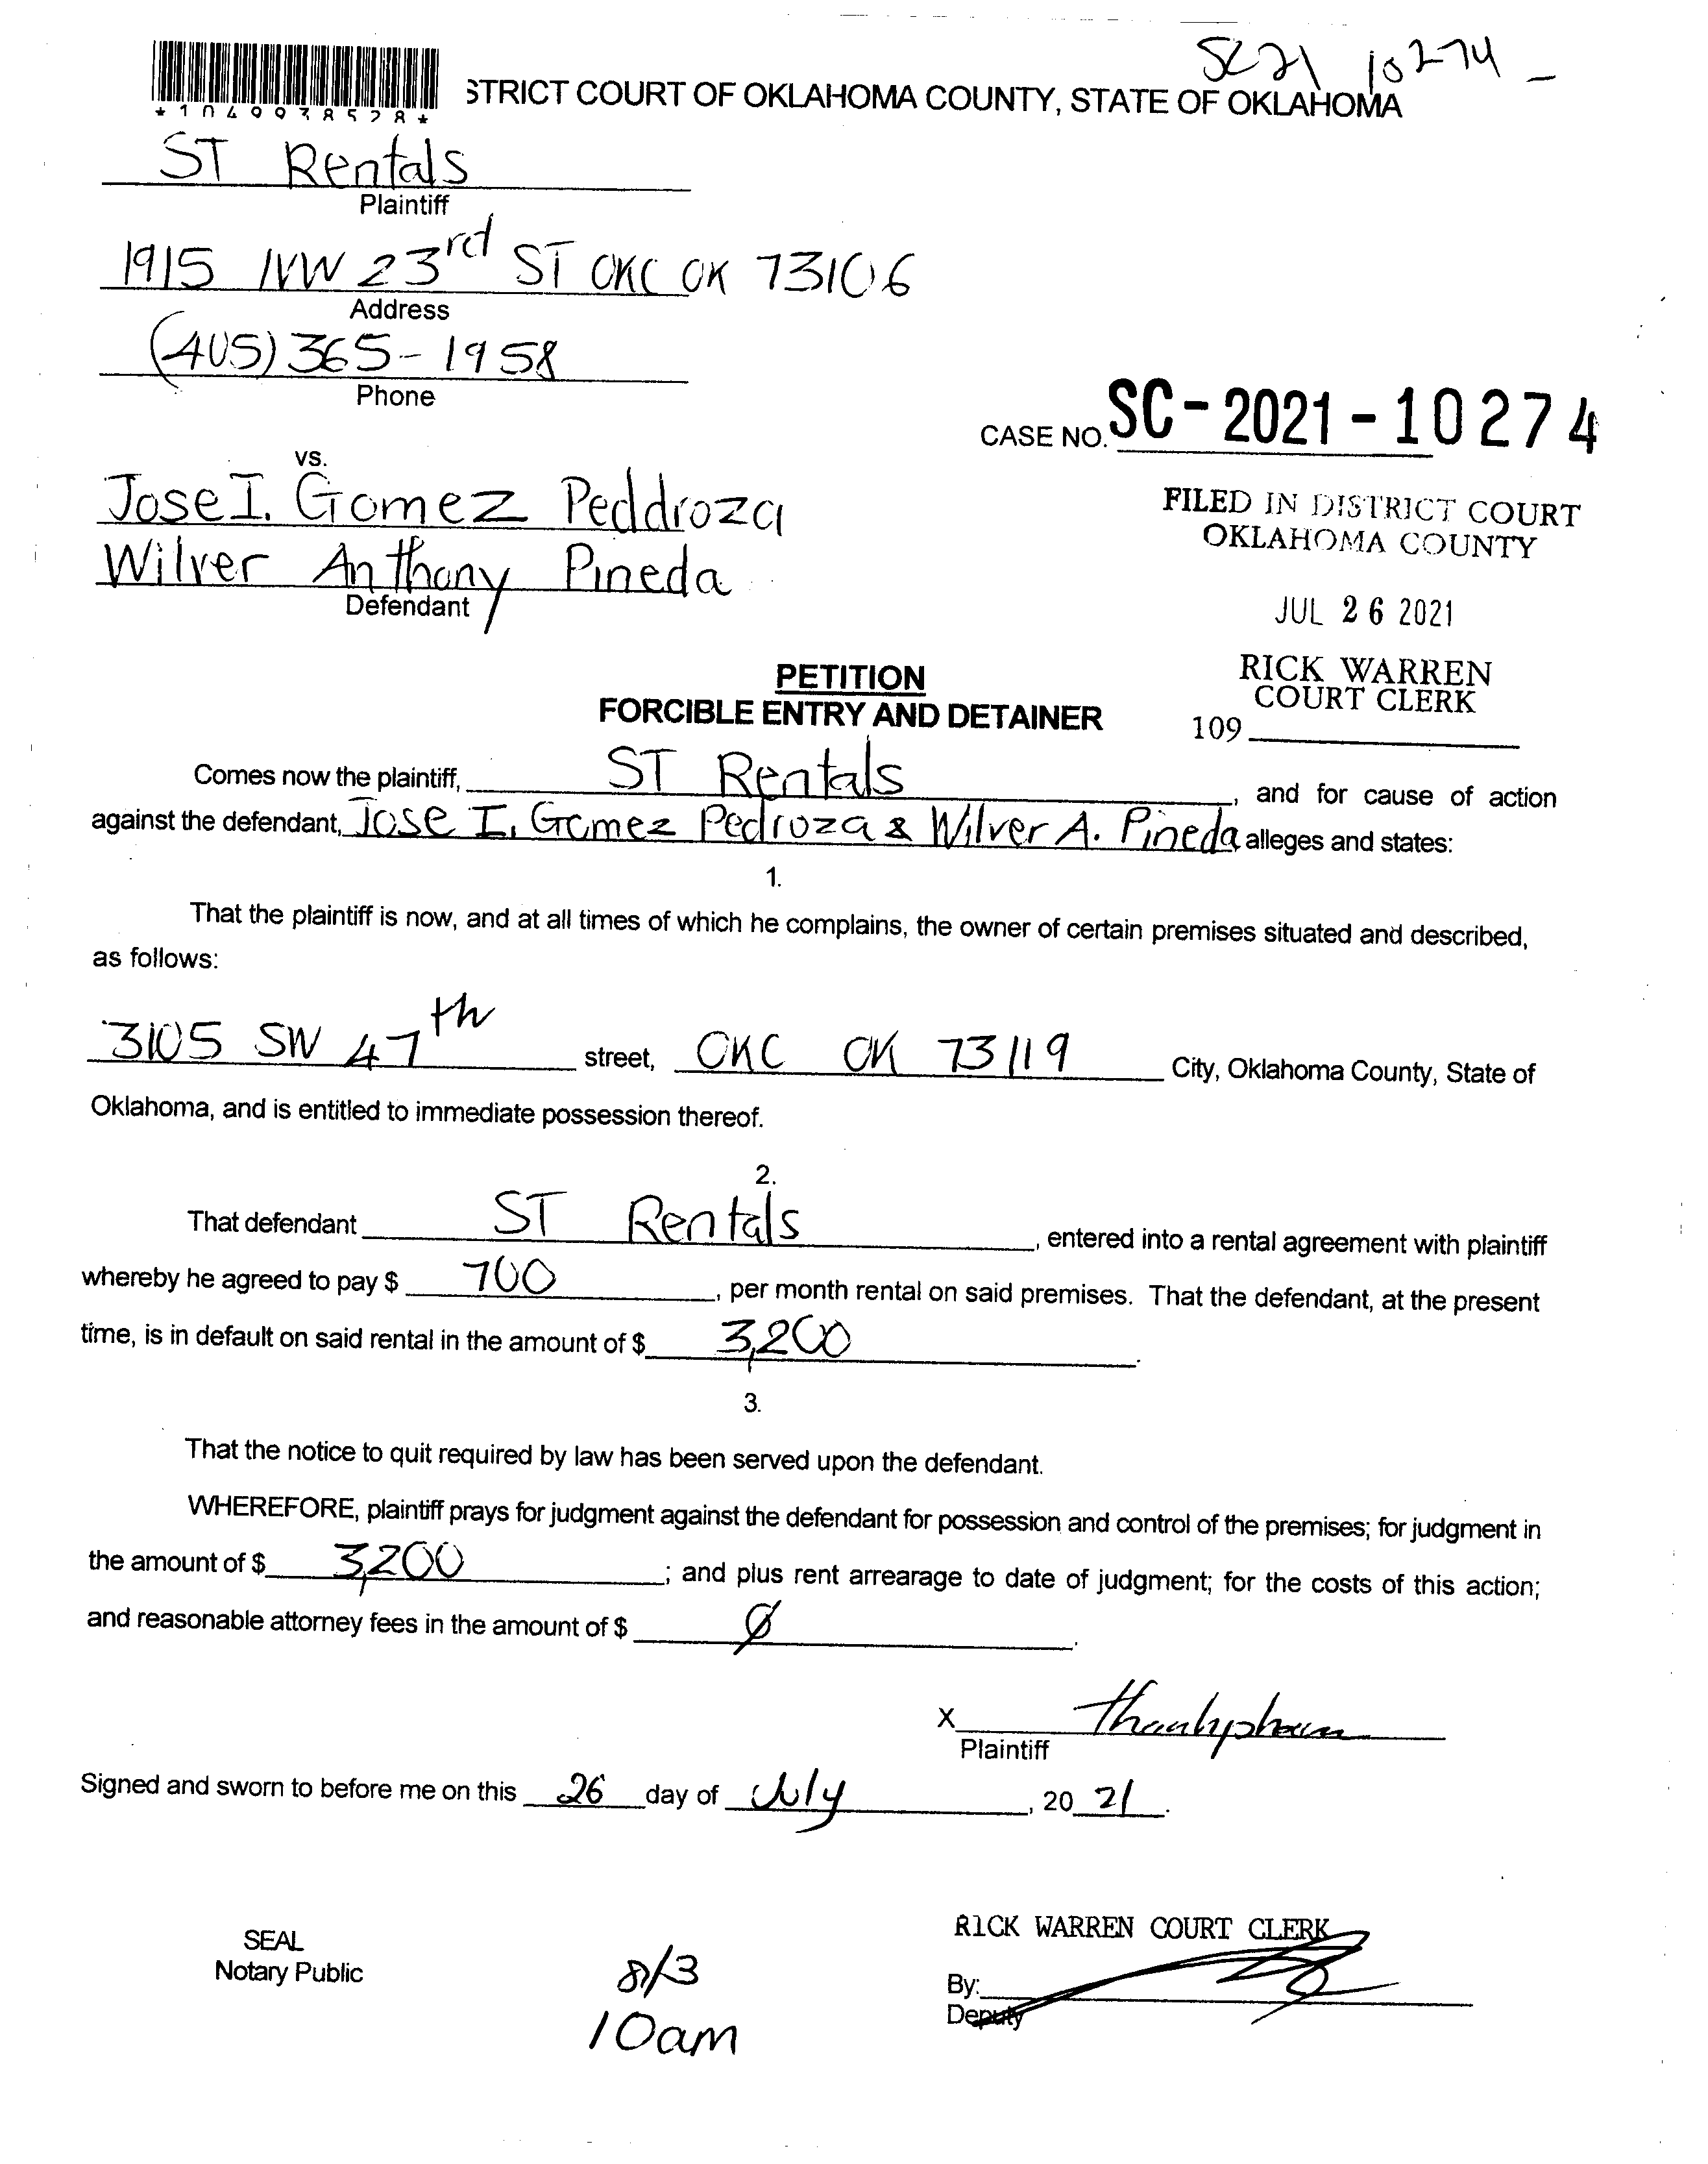 SC21 10274 -
STRICT COURT OF OKLAHOMA COUNTY, STATE OF OKLAHOMA
*1049938528*
ST Rentals
Plaintiff
1915 NW 23rd ST OKC OK 73106
Address
(405) 365-1958
Phone
CASE NO. SC-2021-10274
vs.
Jose I. Gomez Peddroza
Wilver Anthony Pineda
Defendant
FILED IN DISTRICT COURT
OKLAHOMA COUNTY
JUL 26 2021
RICK WARREN
COURT CLERK
109
PETITION
FORCIBLE ENTRY AND DETAINER
Comes now the plaintiff, ST Rentals, and for cause of action
against the defendant, Jose I. Gomez Pedroza & Wilver A. Pineda alleges and states:
1.
That the plaintiff is now, and at all times of which he complains, the owner of certain premises situated and described,
as follows:
3105 SW 47th street, OKC OK 73119 City, Oklahoma County, State of
Oklahoma, and is entitled to immediate possession thereof.
2.
That defendant ST Rentals, entered into a rental agreement with plaintiff
whereby he agreed to pay $ 700, per month rental on said premises. That the defendant, at the present
time, is in default on said rental in the amount of $ 3,200.
3.
That the notice to quit required by law has been served upon the defendant.
WHEREFORE, plaintiff prays for judgment against the defendant for possession and control of the premises; for judgment in
the amount of $ 3,200; and plus rent arrearage to date of judgment; for the costs of this action;
and reasonable attorney fees in the amount of $ Ø.
X
Plaintiff
Signed and sworn to before me on this 26 day of July, 20 21.
SEAL
Notary Public
8/3
10am
RICK WARREN COURT CLERK
By:
Deputy